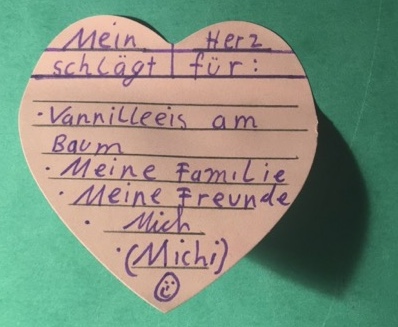 Mein Herz
schlägt für:
· Vannilleeis am
Baum
· Meine Familie
· Meine Freunde
· Mich
· (Michi)